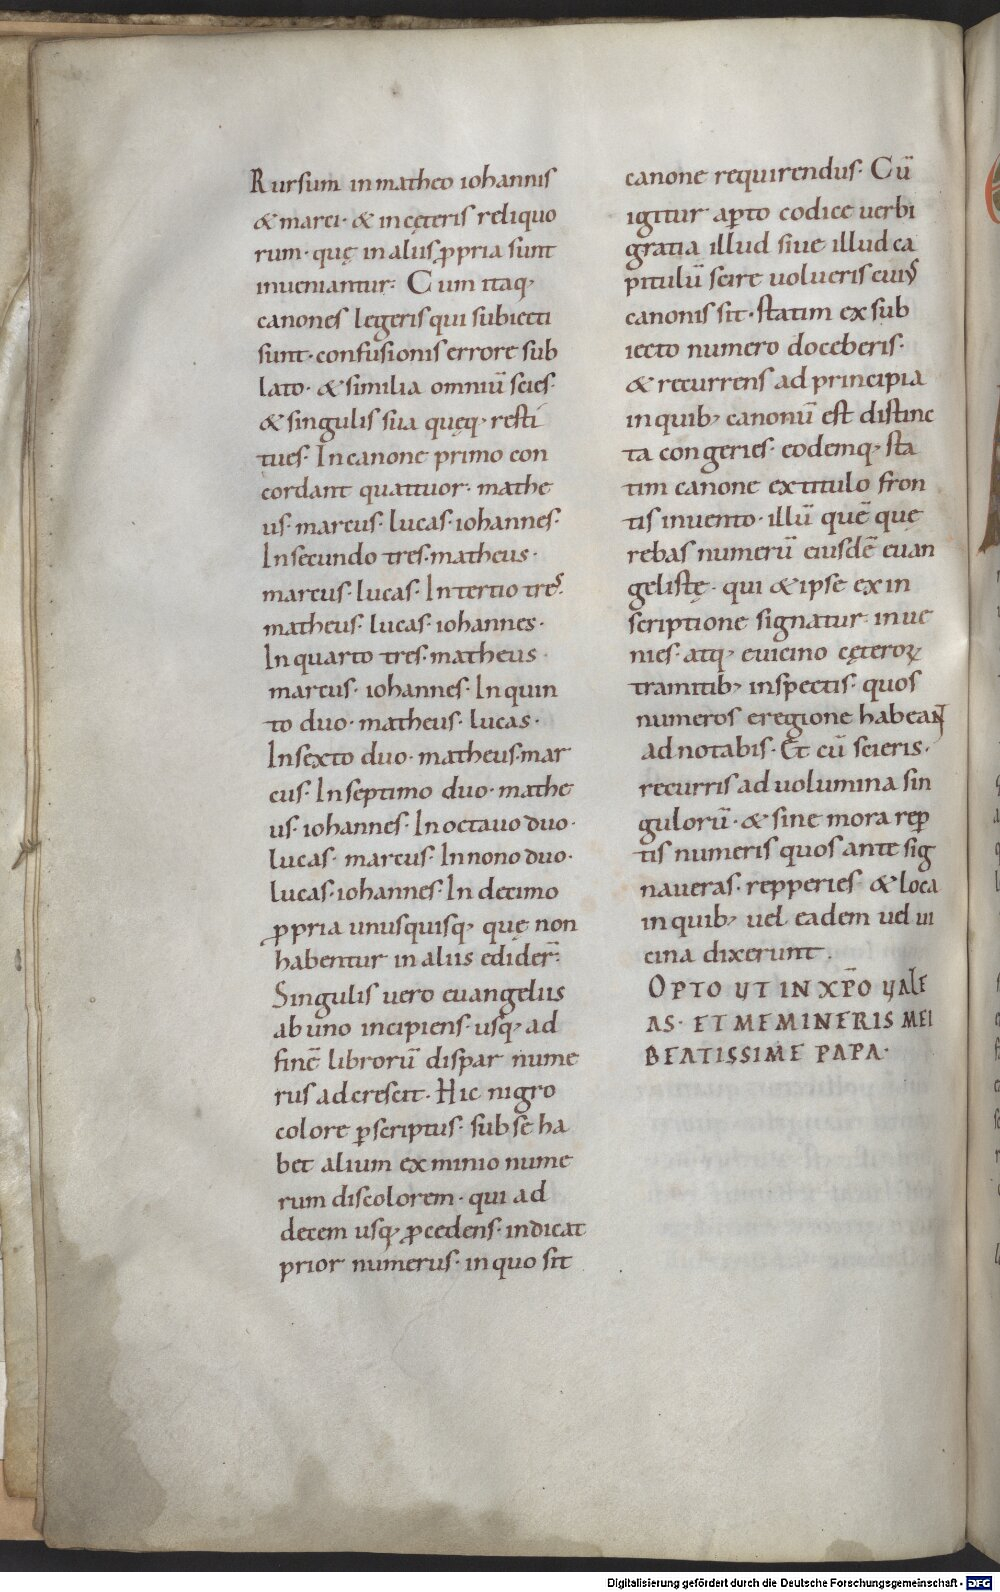 Rursum in matheo iohannis
& marci· & in cęteris reliquo
rum· quę in aliis ꝓpria sunt
inveniantur· Cum itaq;
canones legeris qui subiecti
sunt· confusionis errore sub
lato· & similia omniū scies·
& singulis sua quęq; resti
tues· In canone primo con
cordant quattuor· mathe
us· marcus· lucas· iohannes·
In secundo tres· matheus·
marcus· lucas· In tertio tres·
matheus· lucas· iohannes·
In quarto tres· matheus·
marcus· iohannes· In quin
to duo· matheus· lucas·
In sexto duo· matheus· mar
cus· In septimo duo· mathe
us· iohannes· In octavo duo·
lucas· marcus· In nono duo·
lucas· iohannes· In decimo
ꝓpria unusquisq; quę non
habentur in aliis edider̄·
Singulis uero euangeliis
ab uno incipiens· usq; ad
finē librorū dispar nume
rus adcrescit· Hic nigro
colore ꝑscriptus· sub se ha
bet alium ex minio nume
rum discolorem· qui ad
decem usq; ꝓcedens· indicat
prior numerus· in quo sit
canone requirendus· Cū
igitur aꝑto codice uerbi
gratia illud siue illud ca
pitulū scire uolueris cuiꝰ
canonis sit· statim ex sub
iecto numero doceberis·
& recurrens ad principia
in quib; canonū est distinc
ta congeries· eodemq; sta
tim canone ex titulo fron
tis invento· illū quē quę
rebas numerū eiusdē euan
gelistę· qui & ipse ex in
scriptione signatur· inue
nies· atq; e uicino cęteroꝝ
tramitib; inspectis· quos
numeros e regione habeant
adnotabis· Et cū scieris·
recurris ad uolumina sin
gulorū· & sine mora reꝑ
tis numeris quos ante sig
naueras· repperies & loca
in quib; uel eadem uel ui
cina dixerunt·
OPTO UT IN XP̄O UALE
AS· ET MEMINERIS MEI
BEATISSIME PAPA·
Digitalisierung gefördert durch die Deutsche Forschungsgemeinschaft - DFG